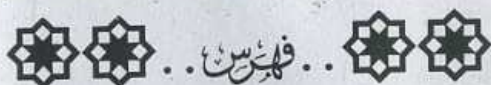 ..فهرس..